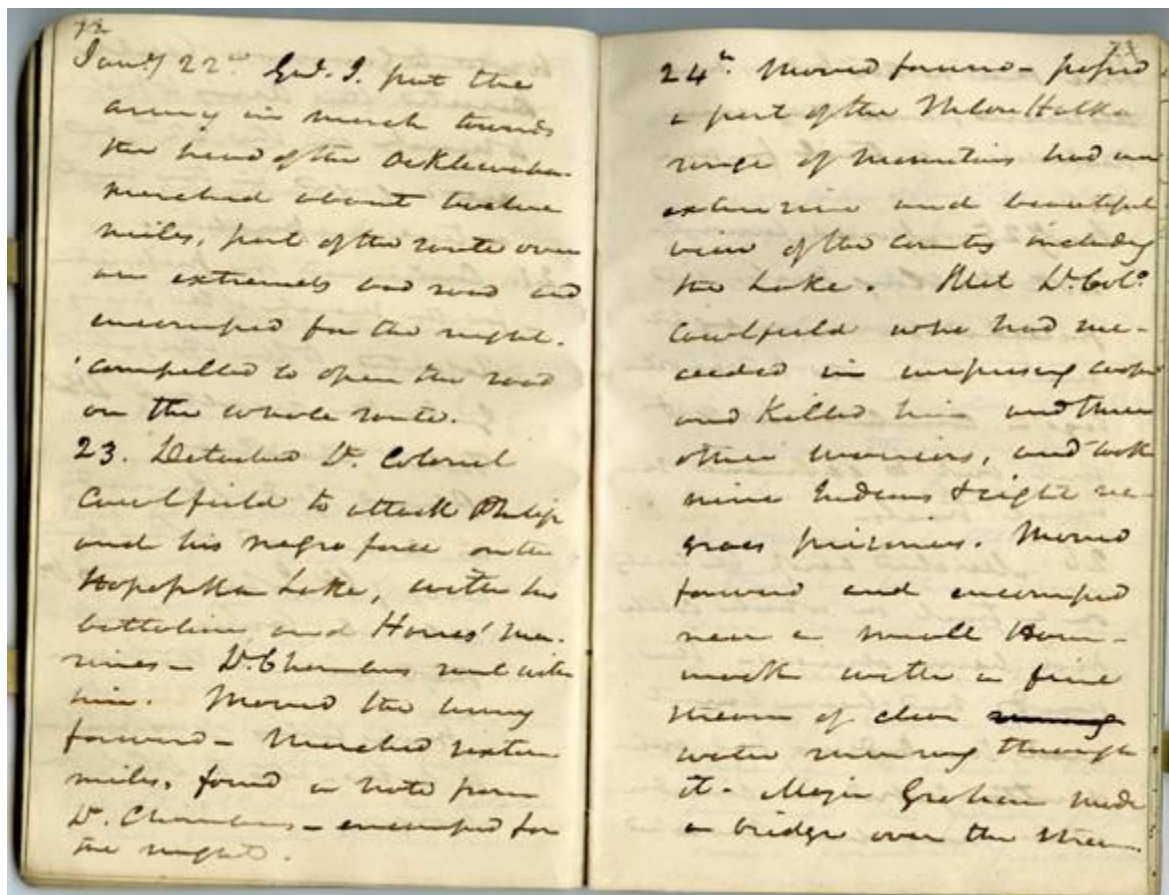 72
Jany 22nd Genl. J. put the
army in march towards
the head of the Ocklawaha.
marched about twelve
miles, part of the route over
an extremely bad road and
encamped for the night.
compelled to open the road
on the whole route.
23. Detached Lt. Colonel
Caulfield to attack Philip
and his negro force on the
Ahapopka Lake, with his
battalion and Harris' ma-
rines - Lt. Chambers went with
him. Moved the army
forward - Marched sixteen
miles, found a note from
Lt. Chambers - encamped for
the night.
73
24th. Moved forward - passed
a part of the Thlow Hatka
range of Mountains had an
extensive and beautiful
view of the country including
the Lake. Met Lt. Colo.
Caulfield who had suc-
ceeded in surprising
and killed him and three
other warriors, and took
nine Indians & eight ne-
groes prisoners. Moved
forward and encamped
near a small Ham-
mock with a fine
stream of clear running
water running through
it - Major Graham made
a bridge over the stream